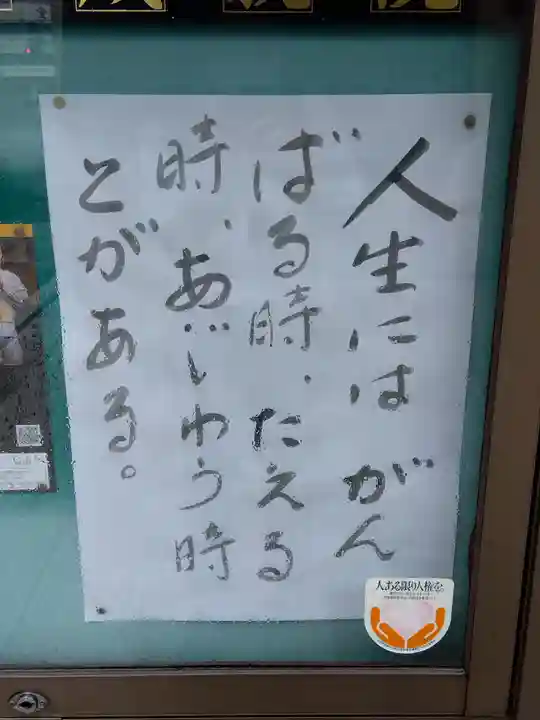 人生には がん
ばる時、たえる
時、あじわう時
とがある。
人ある限り人権を